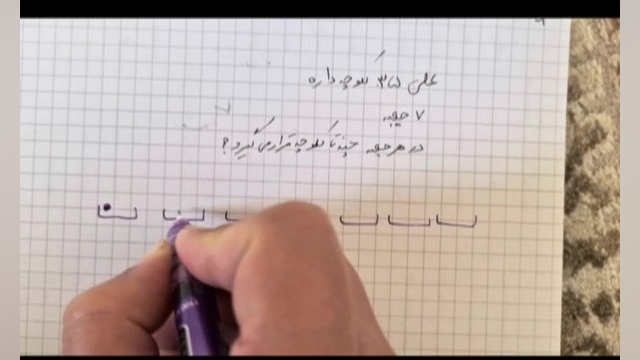 علی ۳۵ کلوچه داره
۷ جعبه
در هر جعبه چند تا کلوچه قرار می گیرد؟